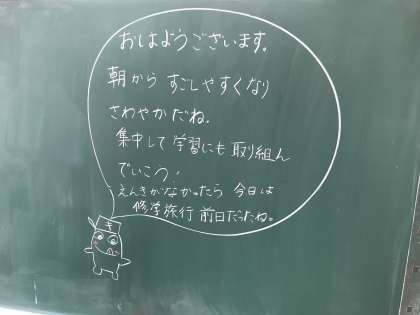 おはようございます。
朝から すごしやすくなり
さわやかだね。
集中して 学習にも 取り組ん
でいこう！
えんきがなかったら 今日は
修学旅行 前日だったね。
キ